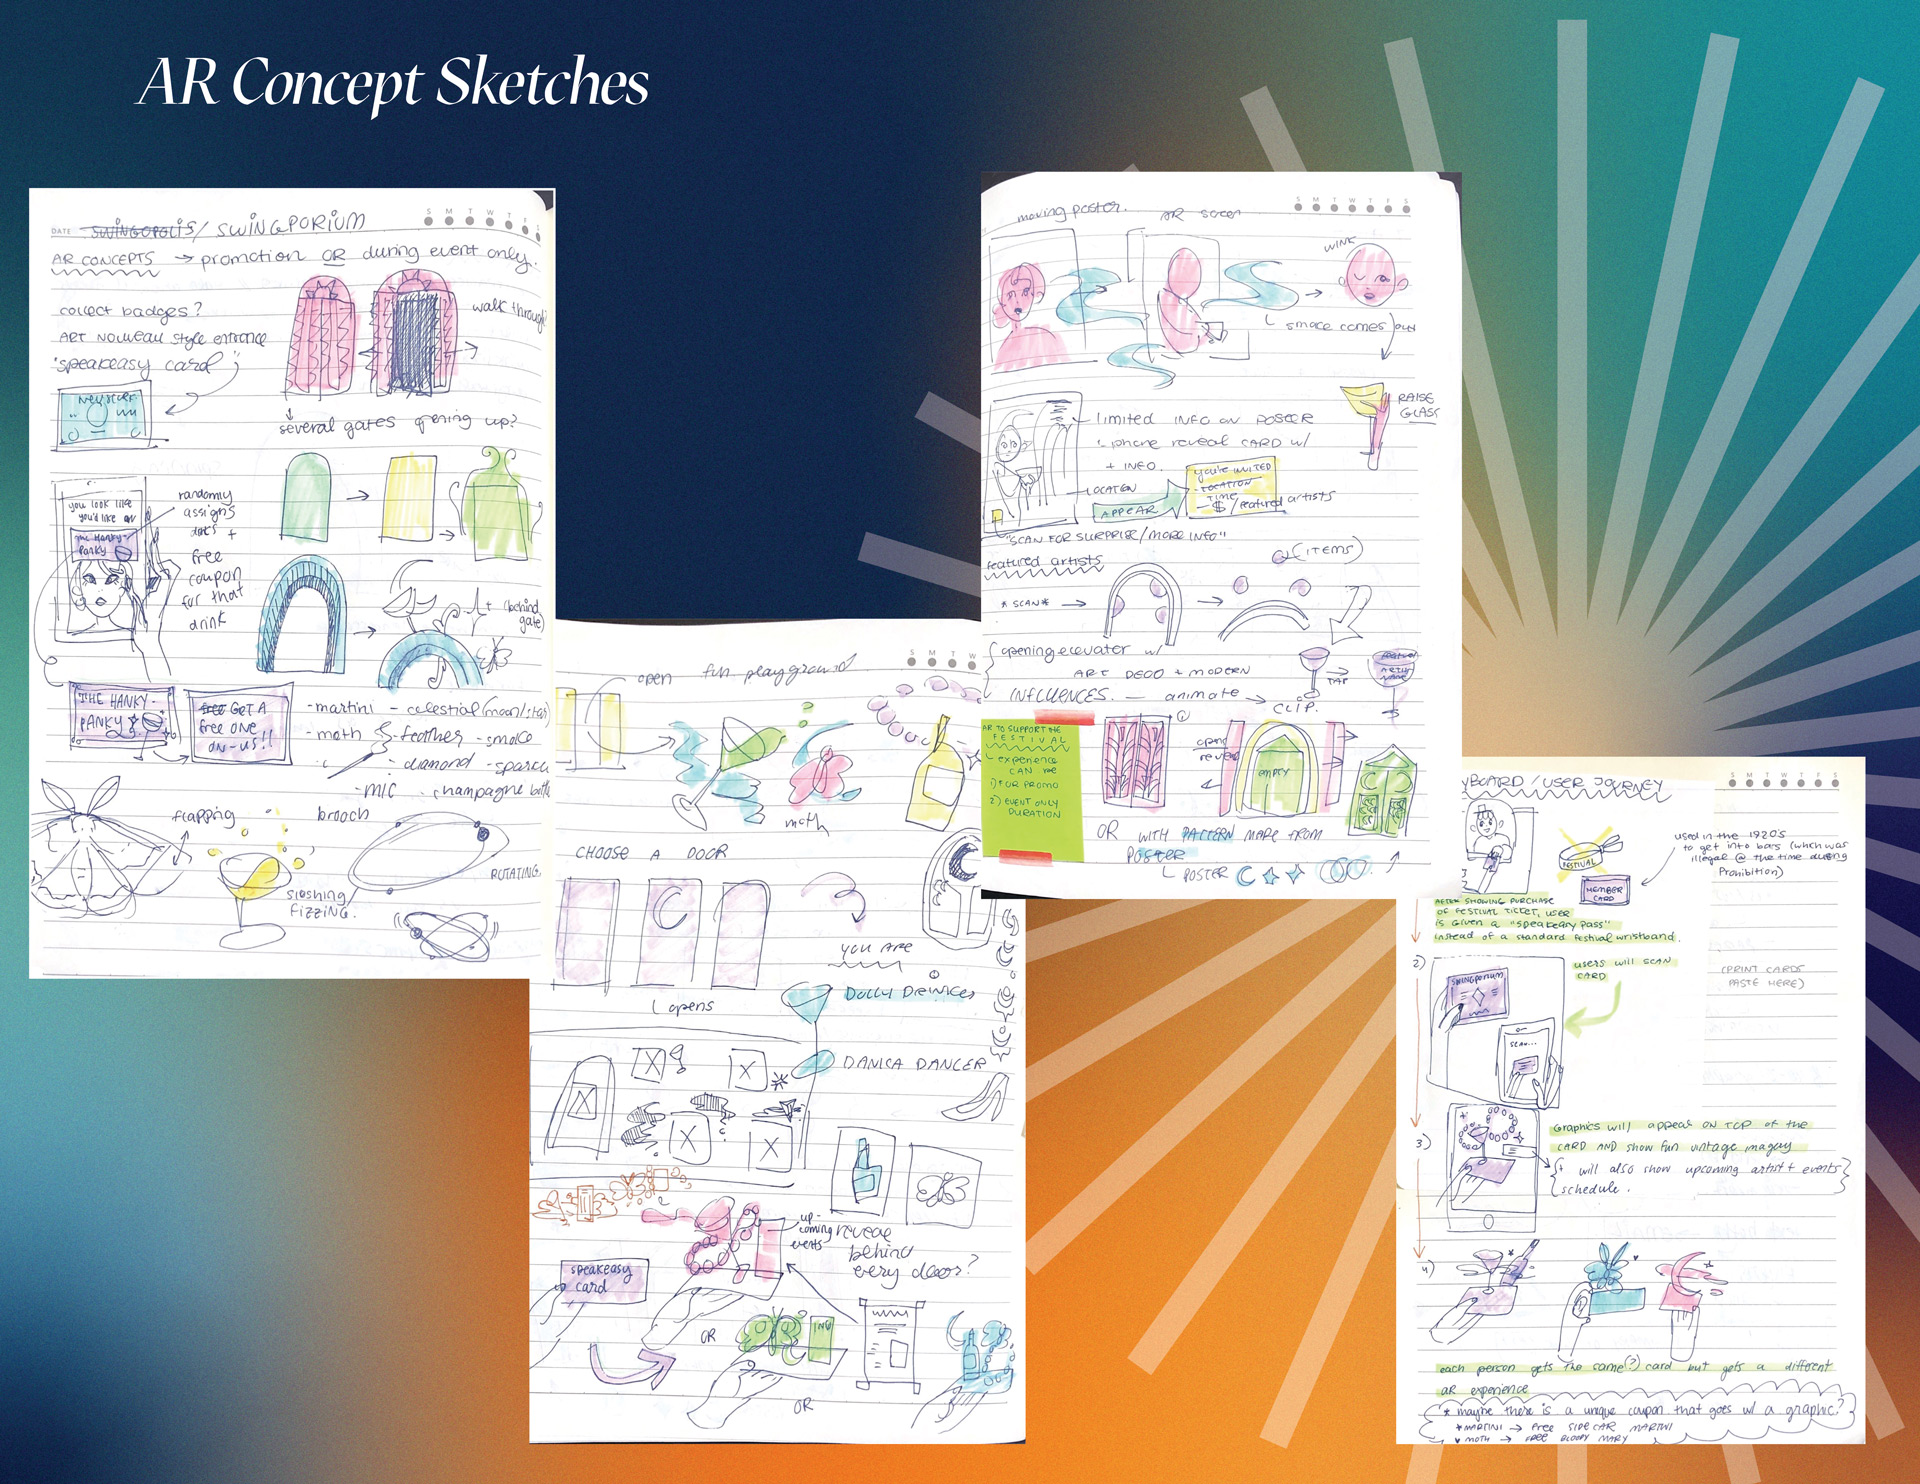 AR Concept Sketches
DATE SWINGOPOLIS / SWINGPORIUM
S M T W T F S
AR CONCEPTS → promotion OR during event only.
collect badges?
ART NOUVEAU style entrance
"speakeasy card"
walk through
several gates opening up?
you look like
you'd like an
The Hanky-
Panky
randomly
assigns
+
free
coupon
for that
drink
(behind
gate)
THE HANKY-
PANKY
free GET A
free one
on-us!!
-martini - celestial (moon/star)
-moth - feather - smoke
- diamond - sparkle
-MIC - champagne bottle
flapping
brooch
sloshing
fizzing.
ROTATING
open fun playground
S M T W
moth
CHOOSE A DOOR
opens
YOU ARE
DOLLY DRINKS
DANICA DANCER
up-
coming
events
reveal
behind
every door?
speakeasy
card
OR
OR
moving poster.
S M T W T F S
WINK
smoke comes out
RAISE
GLASS
limited INFO ON POSTER
phone reveal CARD w/
+ INFO.
LOCATION
APPEAR
you're INVITED
- LOCATION
TIME
- $ / featured artists
"SCAN FOR SURPRISE/MORE INFO"
featured artists
(ITEMS)
*SCAN* →
opening elevator w/
ART DECO + MODERN
INFLUENCES. — animate →
CLIP.
TAP
AR TO SUPPORT THE
FESTIVAL
experience
CAN BE
1) FOR PROMO
2) EVENT ONLY
DURATION
open
reveal
empty
OR WITH PATTERN MADE FROM
POSTER
POSTER
YBOARD / USER JOURNEY
S M T W T F S
FESTIVAL
MEMBER
CARD
used in the 1920's
to get into bars (which was
illegal @ the time during
Prohibition)
AFTER SHOWING PURCHASE
OF FESTIVAL TICKET, USER
IS GIVEN A "speakeasy pass"
instead of a standard festival wristband.
2)
SWINGPORIUM
users will SCAN
CARD
SCAN...
(PRINT CARDS
PASTE HERE)
3)
Graphics will appear ON TOP of the
CARD AND show fun vintage imagery
+ will also show upcoming artist + events
schedule.
4)
each person gets the same(?) card but gets a different
AR experience
* maybe there is a unique coupon that goes w/ a graphic?
*MARTINI → Free SIDECAR MARTINI
♥ MOTH → FREE BLOODY MARY